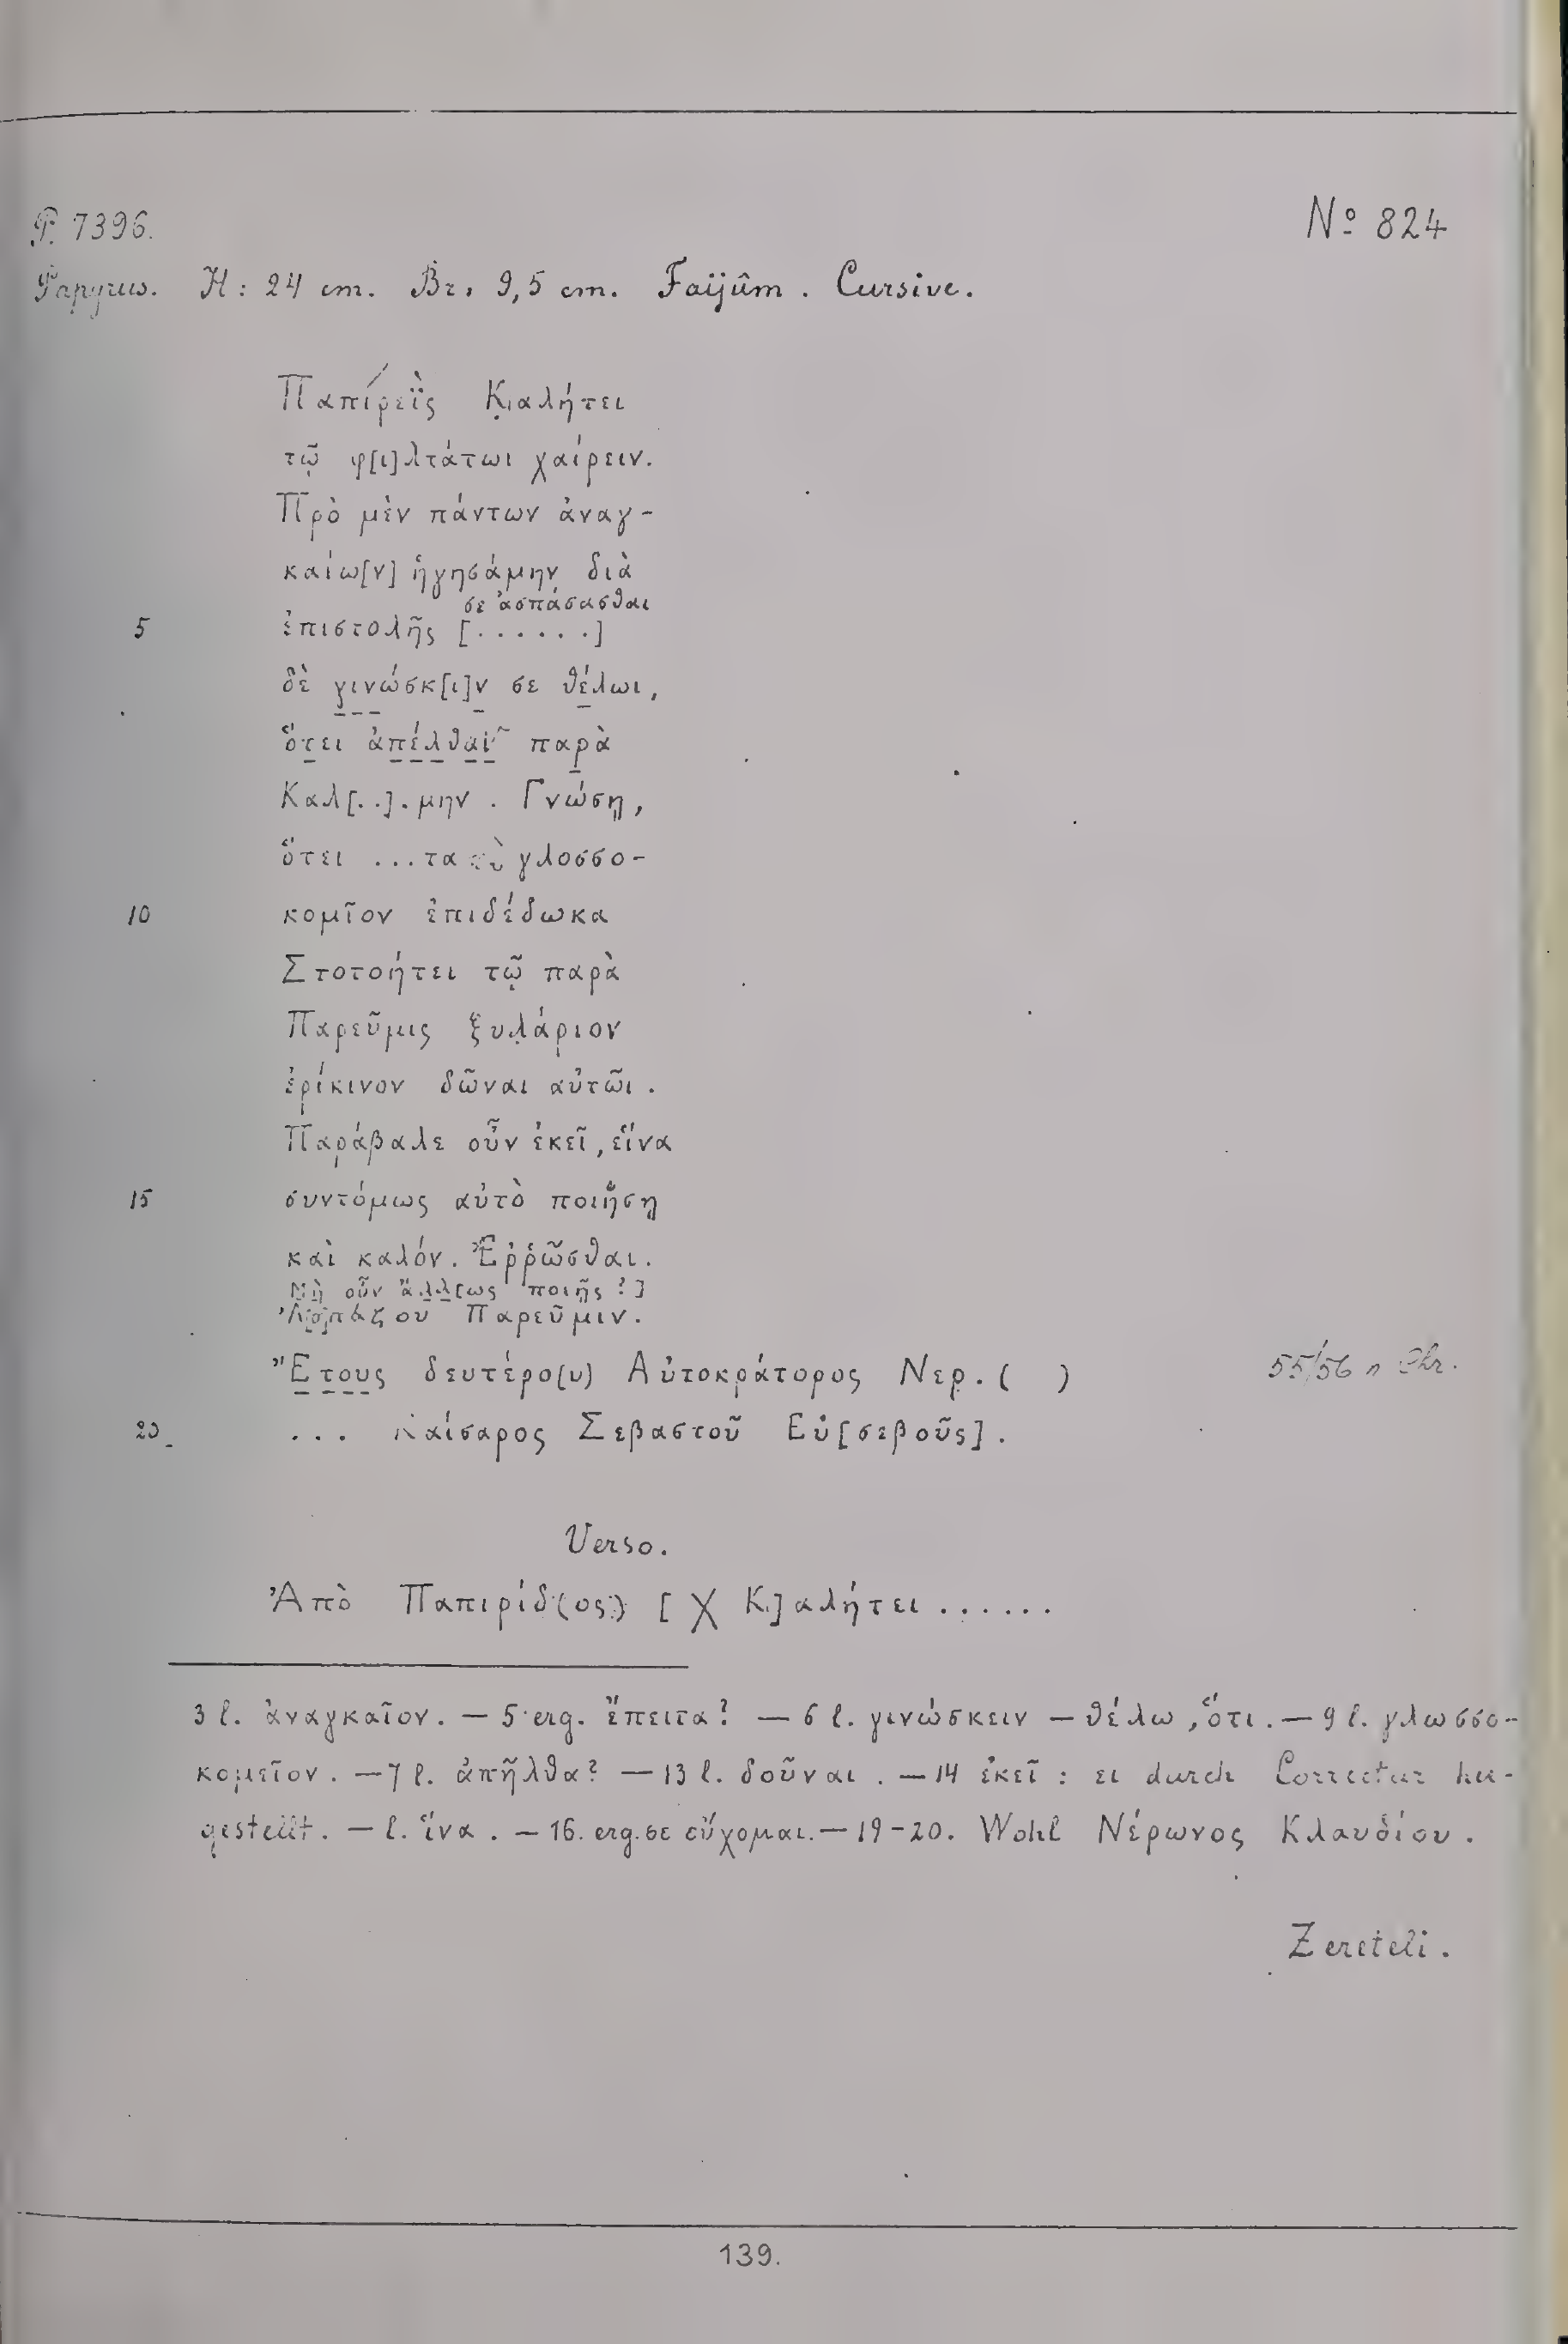 P. 7396.
Nº 824
Papyrus. H: 24 cm. Br. 9,5 cm. Faijûm. Cursive.
Παπίρεῒς Κιαλήτει
τῷ φ[ι]λτάτωι χαίρειν.
Πρὸ μὲν πάντων ἀναγ-
καίω[ν] ἡγησάμην διὰ
σε ἀσπάσασθαι
5 ἐπιστολῆς [......]
δὲ γινώσκ[ι]ν σε θέλωι,
ὅτει ἀπέλθαι παρὰ
Καλ[..].μην. Γνώσῃ,
ὅτει ...τα γλοσσο-
10 κομῖον ἐπιδέδωκα
Στοτοήτει τῷ παρὰ
Παρεῦμις ξυλάριον
ἐρίκινον δῶναι αὐτῶι.
Παράβαλε οὖν ἐκεῖ, εἵνα
15 συντόμως αὐτὸ ποιήσῃ
καὶ καλόν. Ἐρρῶσθαι.
Μὴ οὖν ἄλλ[ως ποιῇς?]
Ἀσπάζου Παρεῦμιν.
Ἔτους δευτέρο(υ) Αὐτοκράτορος Νερ.( )
55/56 n Chr.
20 ... Καίσαρος Σεβαστοῦ Εὐ[σεβοῦς].
Verso.
Ἀπὸ Παπιρίδ(ος) [ Χ Κ]αλήτει ......
3 l. ἀναγκαῖον. — 5 erg. ἔπειτα? — 6 l. γινώσκειν — θέλω, ὅτι. — 9 l. γλωσσο-
κομεῖον. — 7 l. ἀπῆλθα? — 13 l. δοῦναι. — 14 ἐκεῖ: ει durch Correctur her-
gestellt. — l. ἵνα. — 16. erg. σε εὔχομαι. — 19-20. Wohl Νέρωνος Κλαυδίου.
Zereteli.
139.